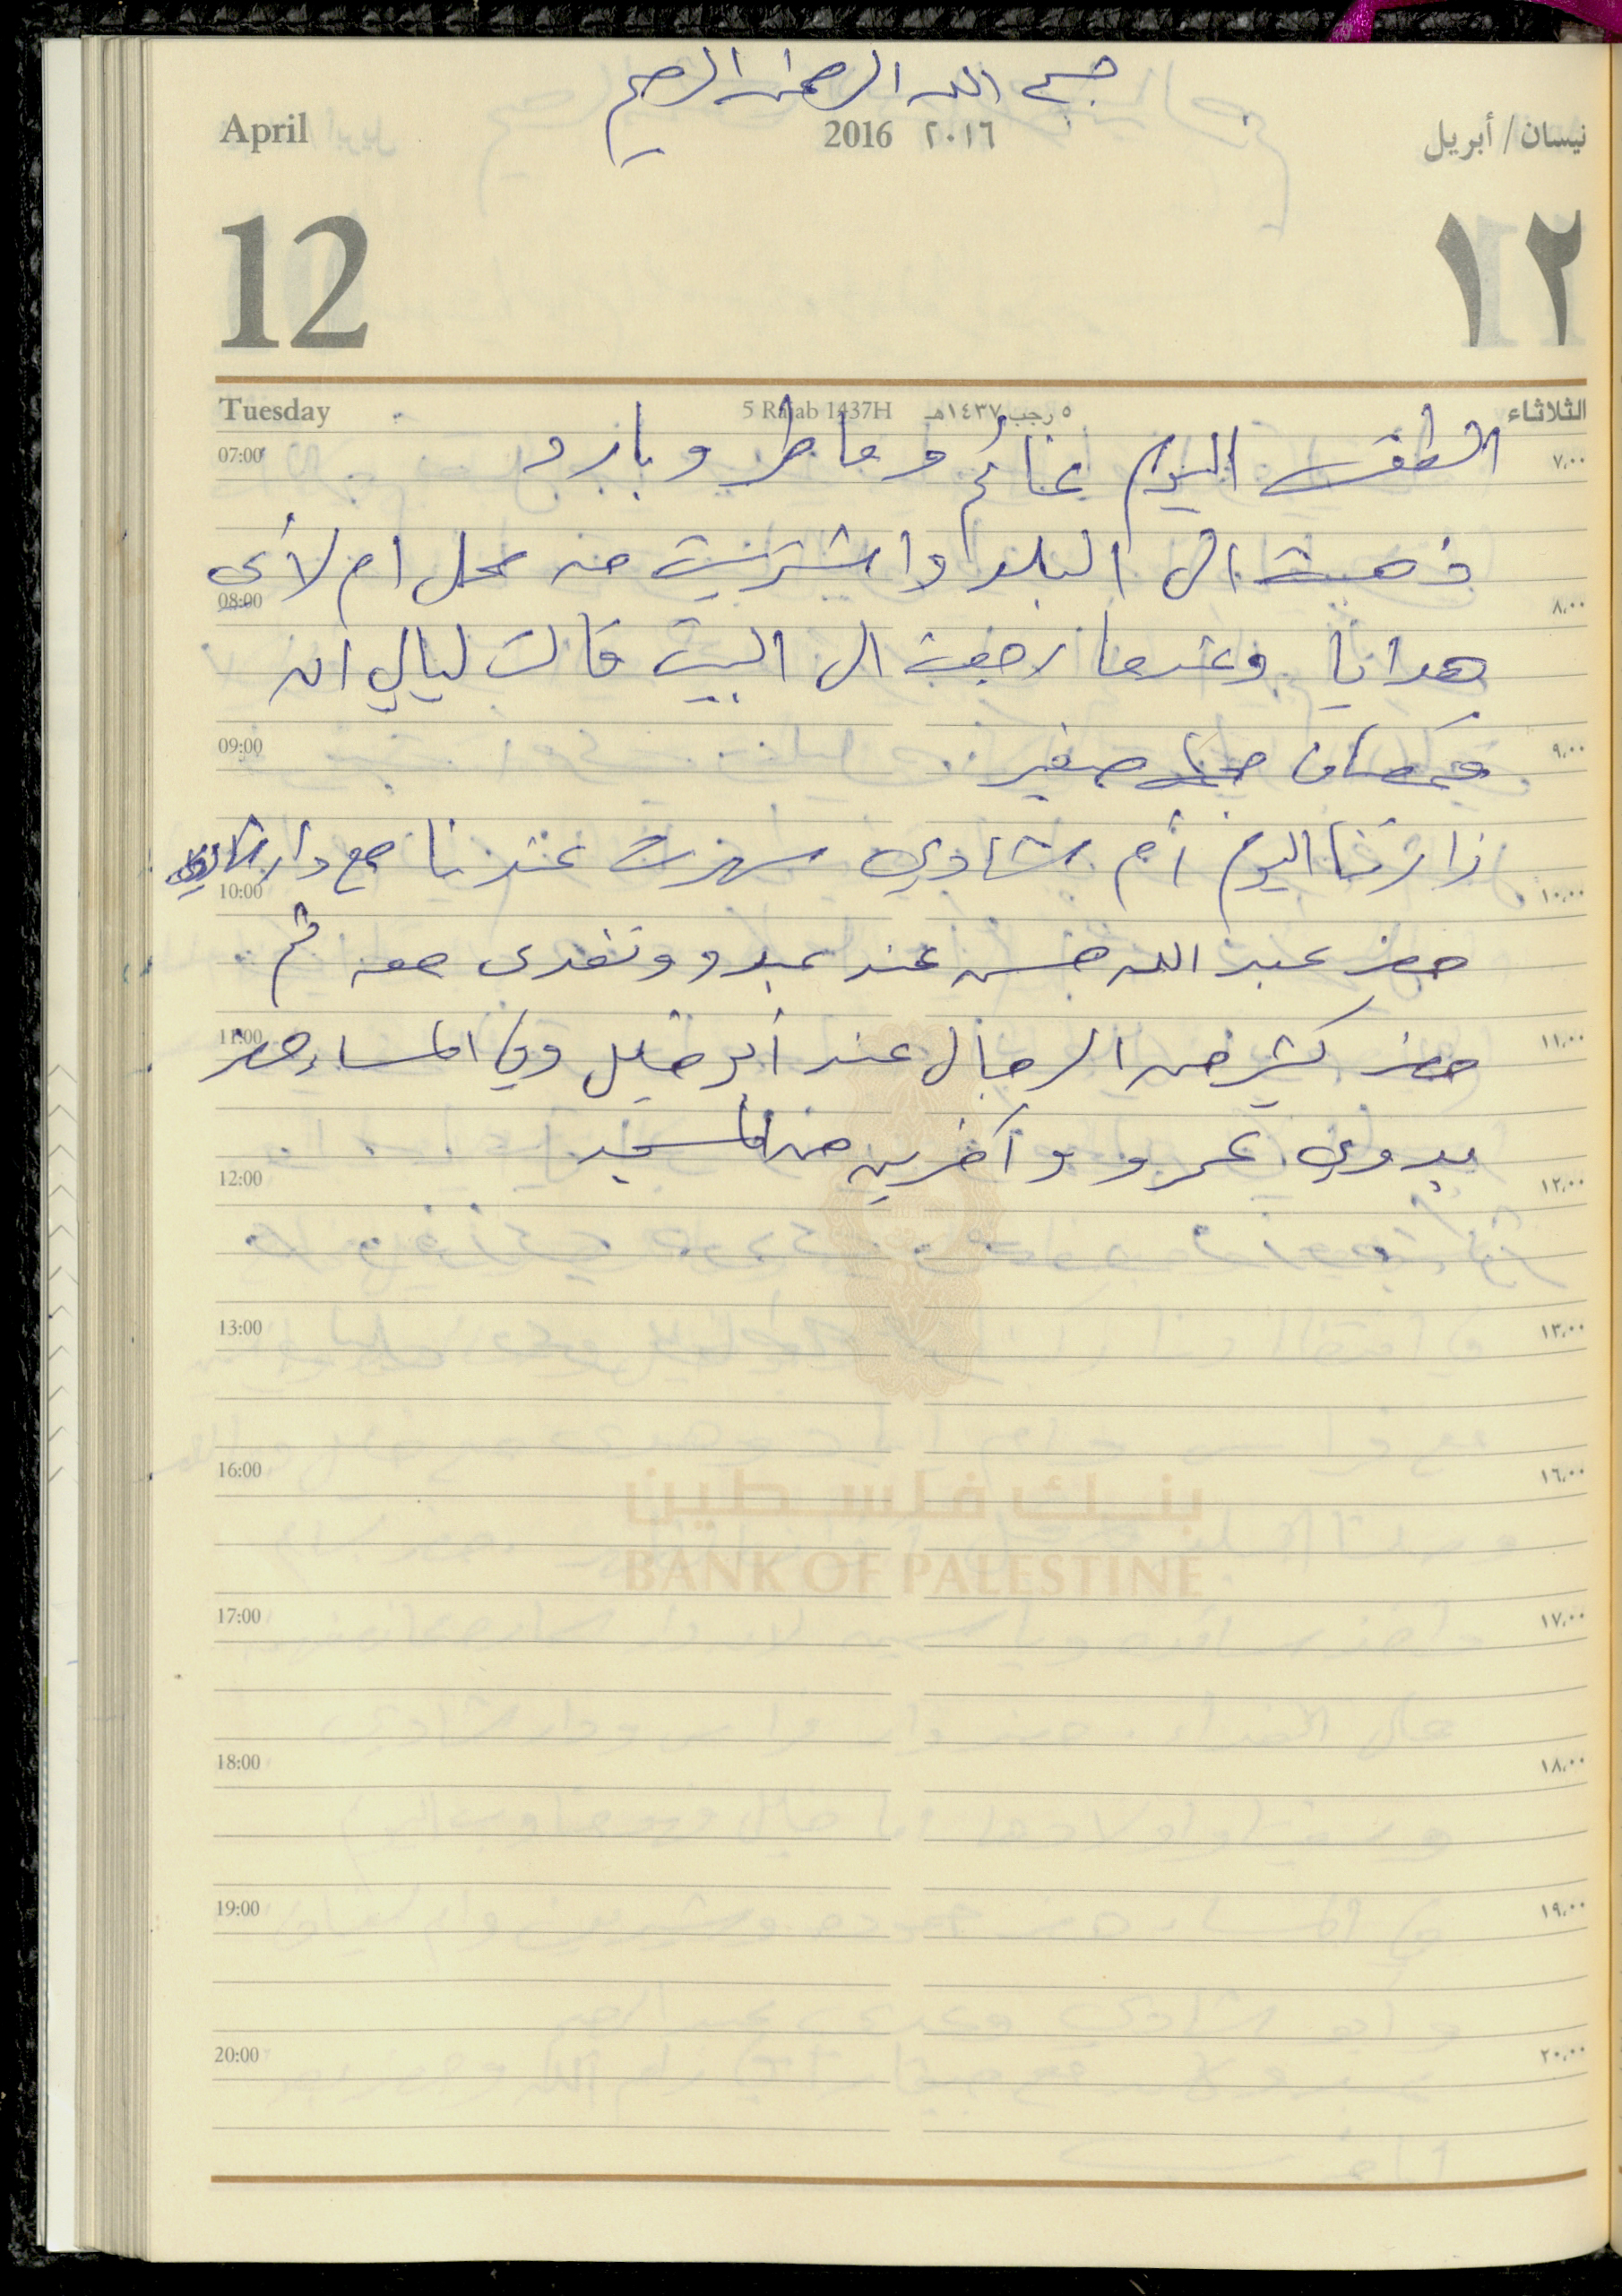 بسم الله الرحمن الرحيم
April 2016 ٢٠١٦ نيسان / أبريل
12 ١٢
Tuesday 5 Rajab 1437H ٥ رجب ١٤٣٧هـ الثلاثاء
07:00 الطقس اليوم غائم وماطر وبارد ٧,٠٠
ذهبت الى البلد واشتريت من محل ام لأي
08:00 ٨,٠٠
هدايا وعندما رجعت الى البيت قالت ليالي ان
09:00 قمصان صغير ٩,٠٠
زارتنا اليوم أم شادي سهرت عندنا مع دار
10:00 ١٠,٠٠
حضر عبد الله حسن عند عبدو وتغدى معه ثم
11:00 حضر كثير من الرجال عند أبو خليل وفي المساء حضر ١١,٠٠
بدوي عمرو وآخرين من المسجد
12:00 ١٢,٠٠
13:00 ١٣,٠٠
16:00 ١٦,٠٠
بنك فلسطين
BANK OF PALESTINE
17:00 ١٧,٠٠
18:00 ١٨,٠٠
19:00 ١٩,٠٠
20:00 ٢٠,٠٠